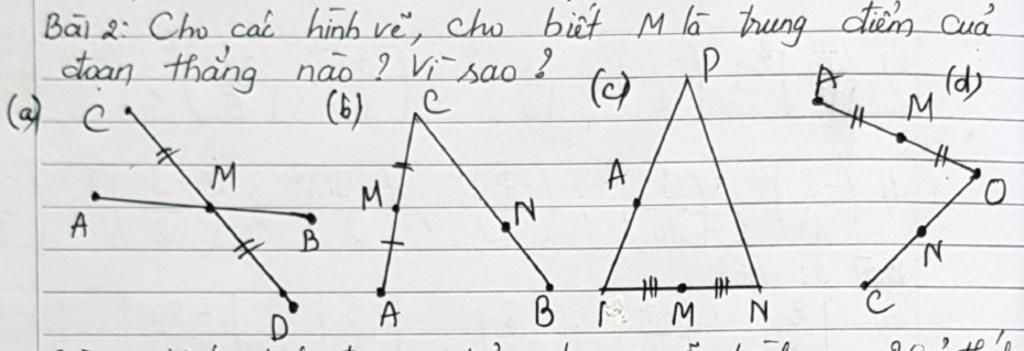 Bài 2: Cho các hình vẽ, cho biết M là trung điểm của
đoạn thẳng nào? Vì sao?
(a) C M A B D
(b) C M N A B
(c) P A M N
(d) A M O N C